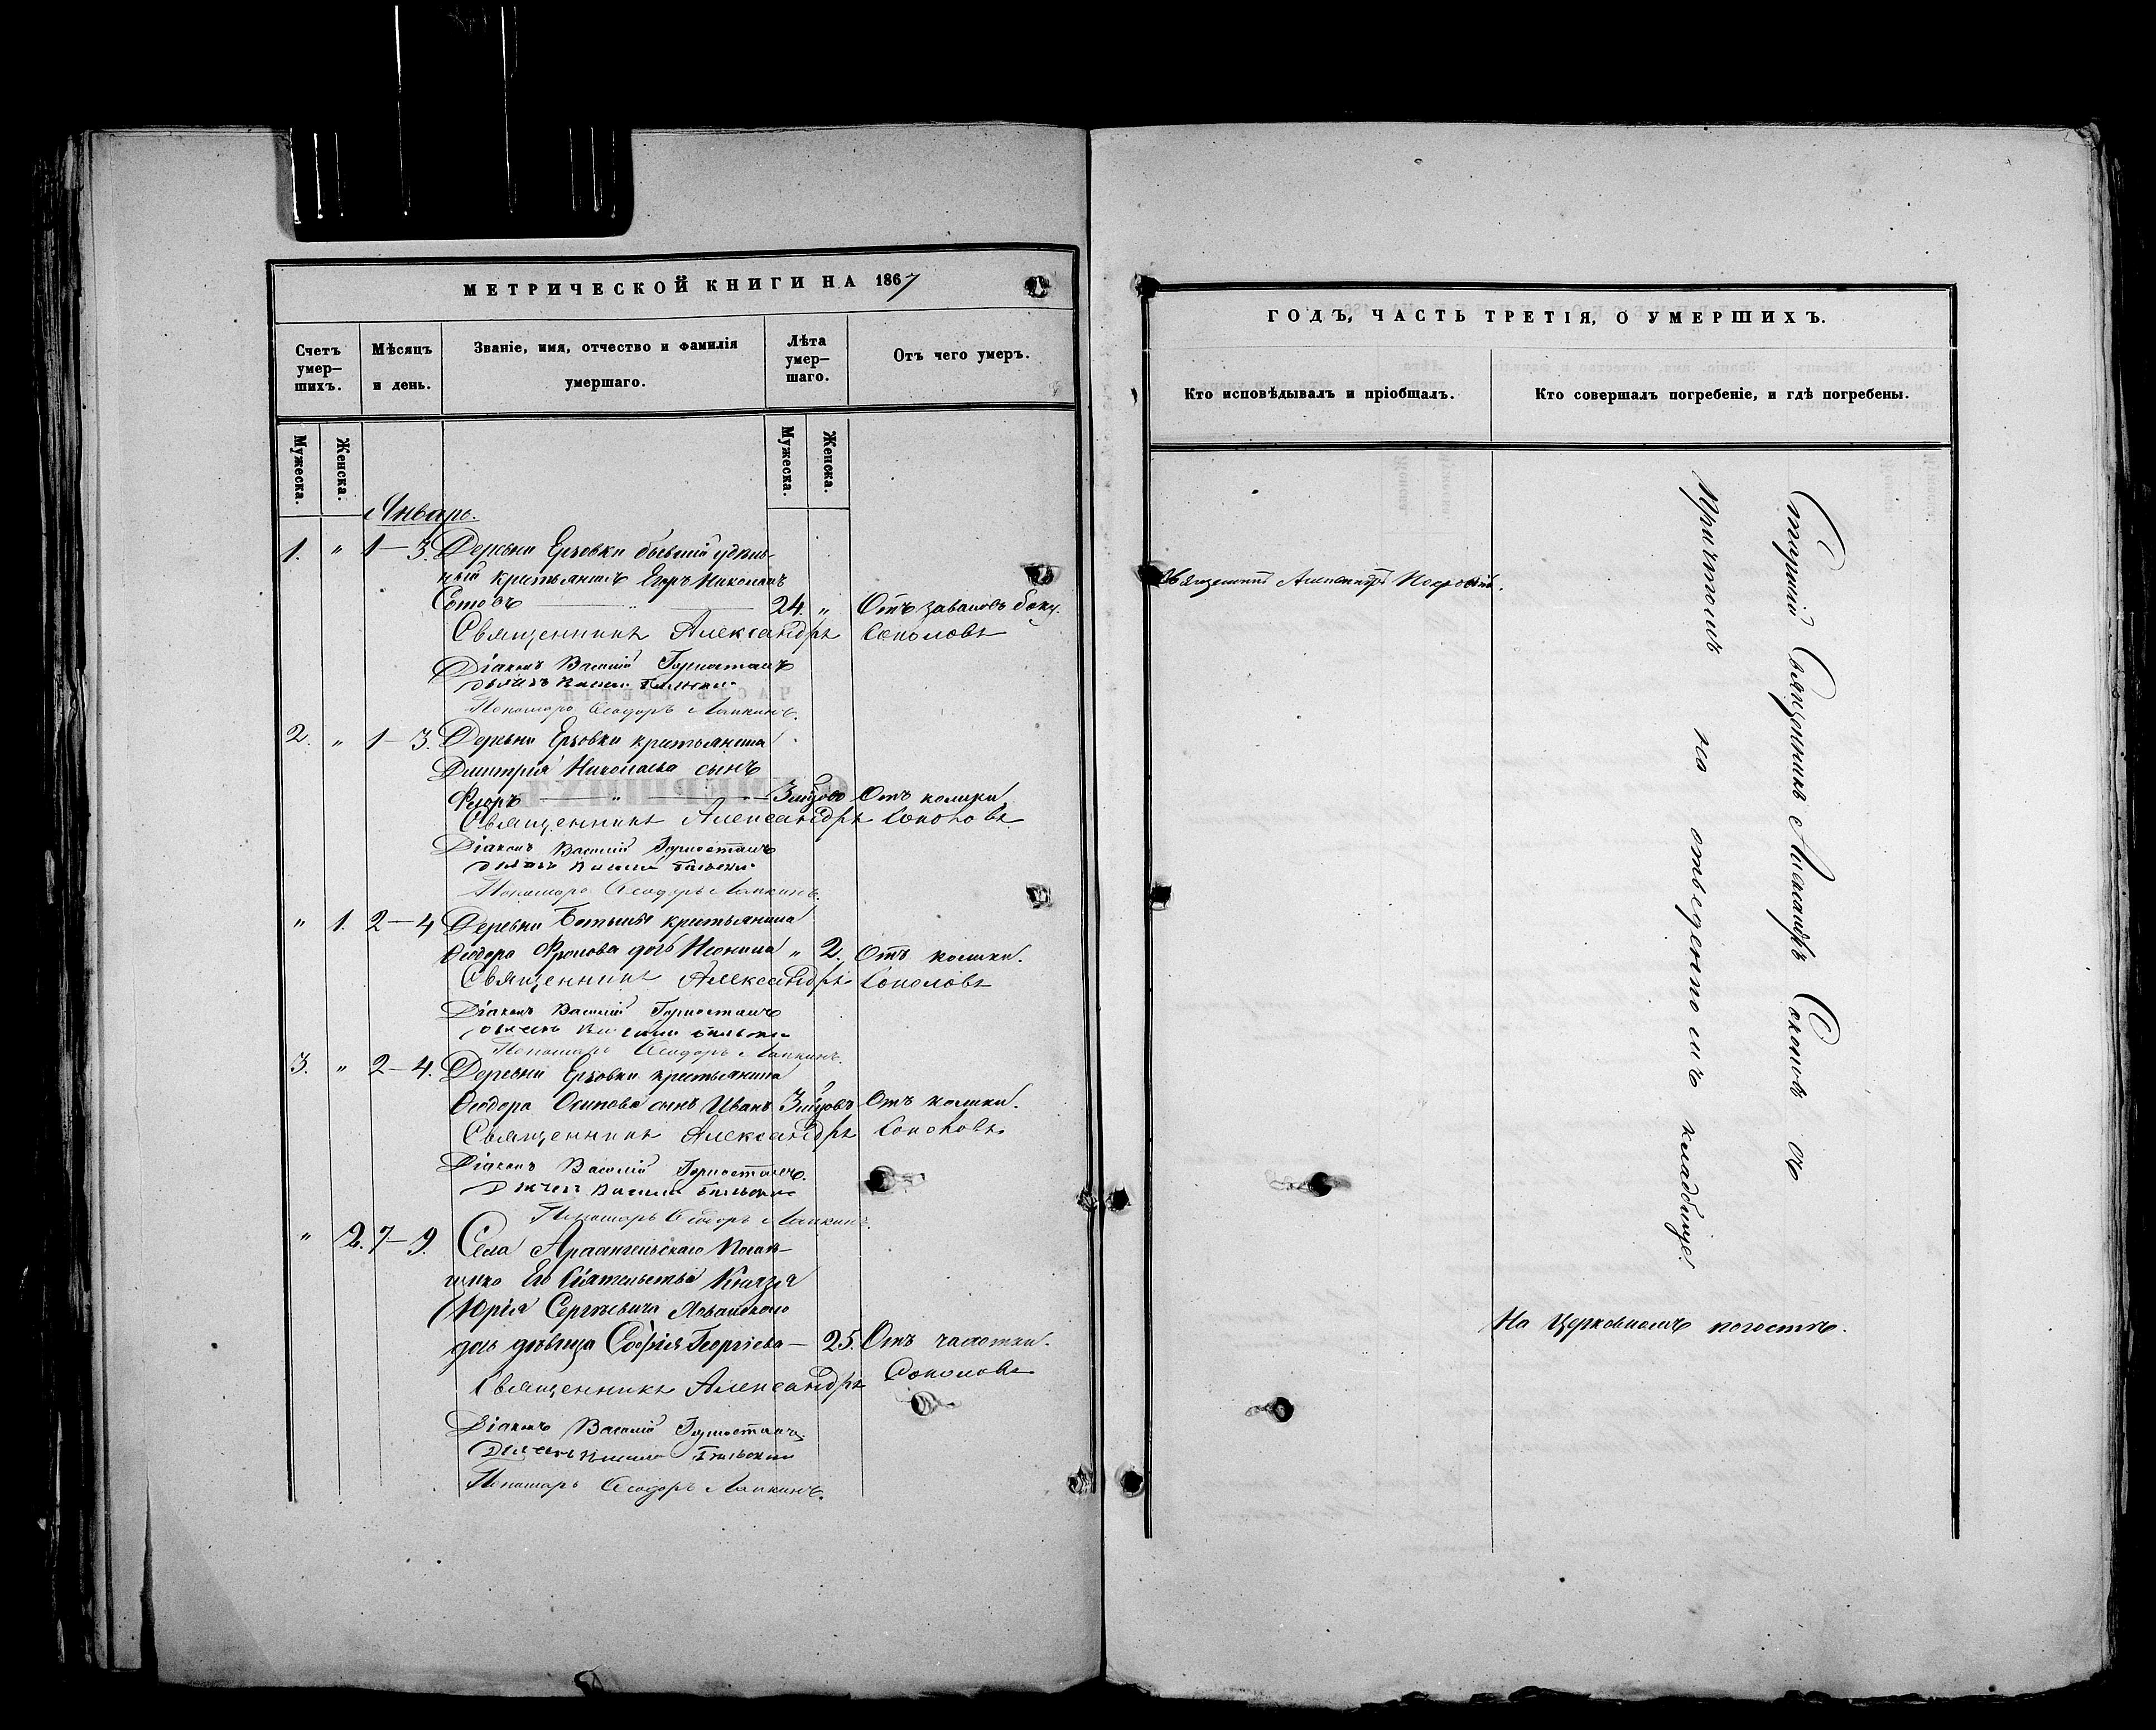 МЕТРИЧЕСКОЙ КНИГИ НА 1867
Счетъ умер-шихъ.
Мѣсяцъ и день.
Званіе, имя, отчество и фамилія умершаго.
Лѣта умер-шаго.
Отъ чего умеръ.
Мужеска.
Женска.
Мужеска.
Женска.
Январь.
1. " 1–3. Деревни Ерзовки бывшій удѣль-
ный крестьянинъ Егоръ Николаевъ
24. " Отъ боку.
Священникъ Александръ Соколовъ
Діаконъ Василій Горностаевъ
Дьячекъ Василій Бѣльскій
Пономарь Ѳеодоръ Лапкинъ.
2. " 1–3. Деревни Ерзовки крестьянина
Дмитрія Николаева сынъ
Отъ колики
Священникъ Александръ Соколовъ
Діаконъ Василій Горностаевъ
Дьячекъ Василій Бѣльскій
Пономарь Ѳеодоръ Лапкинъ.
" 1. 2–4 Деревни крестьянина
Ѳеодора Фролова дочь " 2. Отъ колики.
Священникъ Александръ Соколовъ
Діаконъ Василій Горностаевъ
Дьячекъ Василій Бѣльскій
Пономарь Ѳеодоръ Лапкинъ.
3. " 2–4. Деревни Ерзовки крестьянина
Ѳеодора Осипова сынъ Иванъ Отъ колики.
Священникъ Александръ Соколовъ.
Діаконъ Василій Горностаевъ.
Дьячекъ Василій Бѣльскій
Пономарь Ѳеодоръ Лапкинъ.
" 2. 7–9. Села Архангельскаго Помѣ-
щика Его Сіятельства Князя
Юрія Сергѣевича Хованскаго
дочь дѣвица Софія Георгіева — 25. Отъ чахотки.
Священникъ Александръ Соколовъ
Діаконъ Василій Горностаевъ
Дьячекъ Василій Бѣльскій
Пономарь Ѳеодоръ Лапкинъ.
ГОДЪ, ЧАСТЬ ТРЕТІЯ, О УМЕРШИХЪ.
Кто исповѣдывалъ и пріобщалъ.
Кто совершалъ погребеніе, и гдѣ погребены.
Священникъ Александръ
Старшій Священникъ Александръ Соколовъ съ
Причтомъ на отведенномъ кладбище.
На Церковномъ погостѣ.